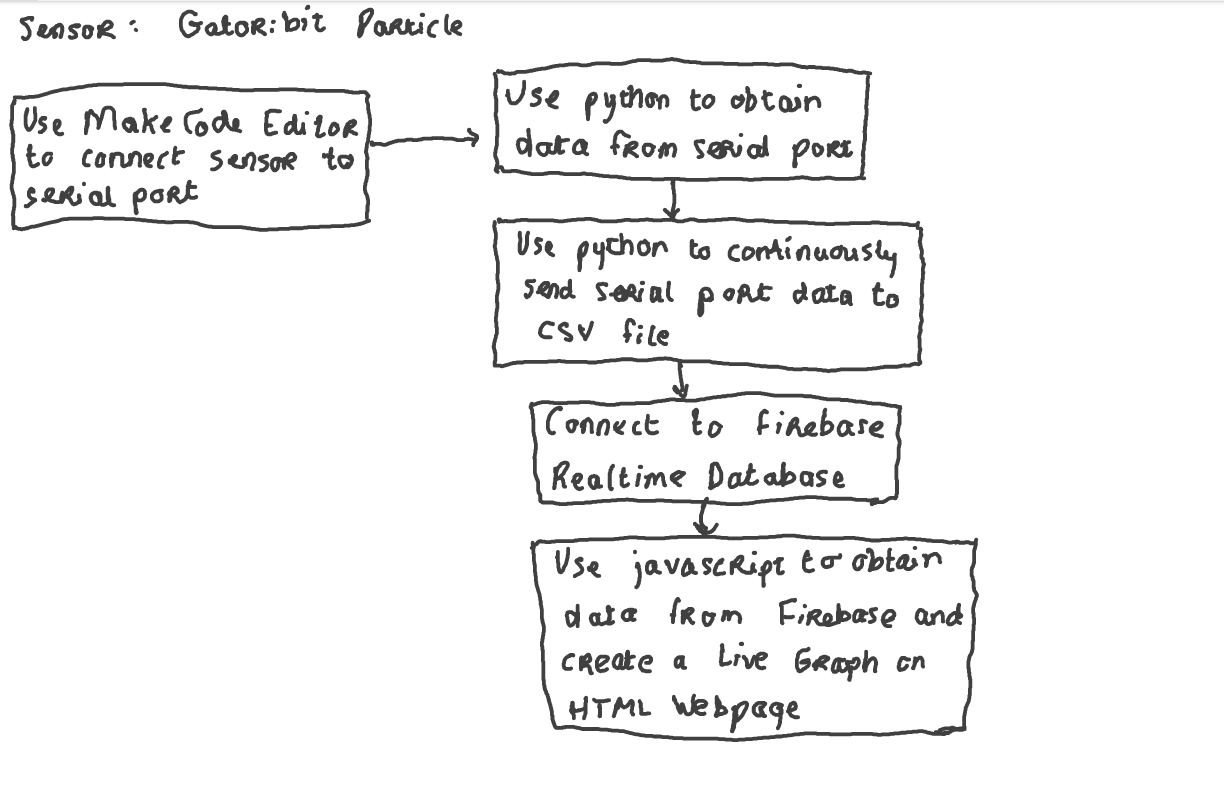 Sensor: Gator:bit Particle
Use MakeCode Editor
to connect sensor to
serial port
Use python to obtain
data from serial port
Use python to continuously
send serial port data to
CSV file
Connect to firebase
Realtime Database
Use javascript to obtain
data from Firebase and
create a Live Graph on
HTML Webpage